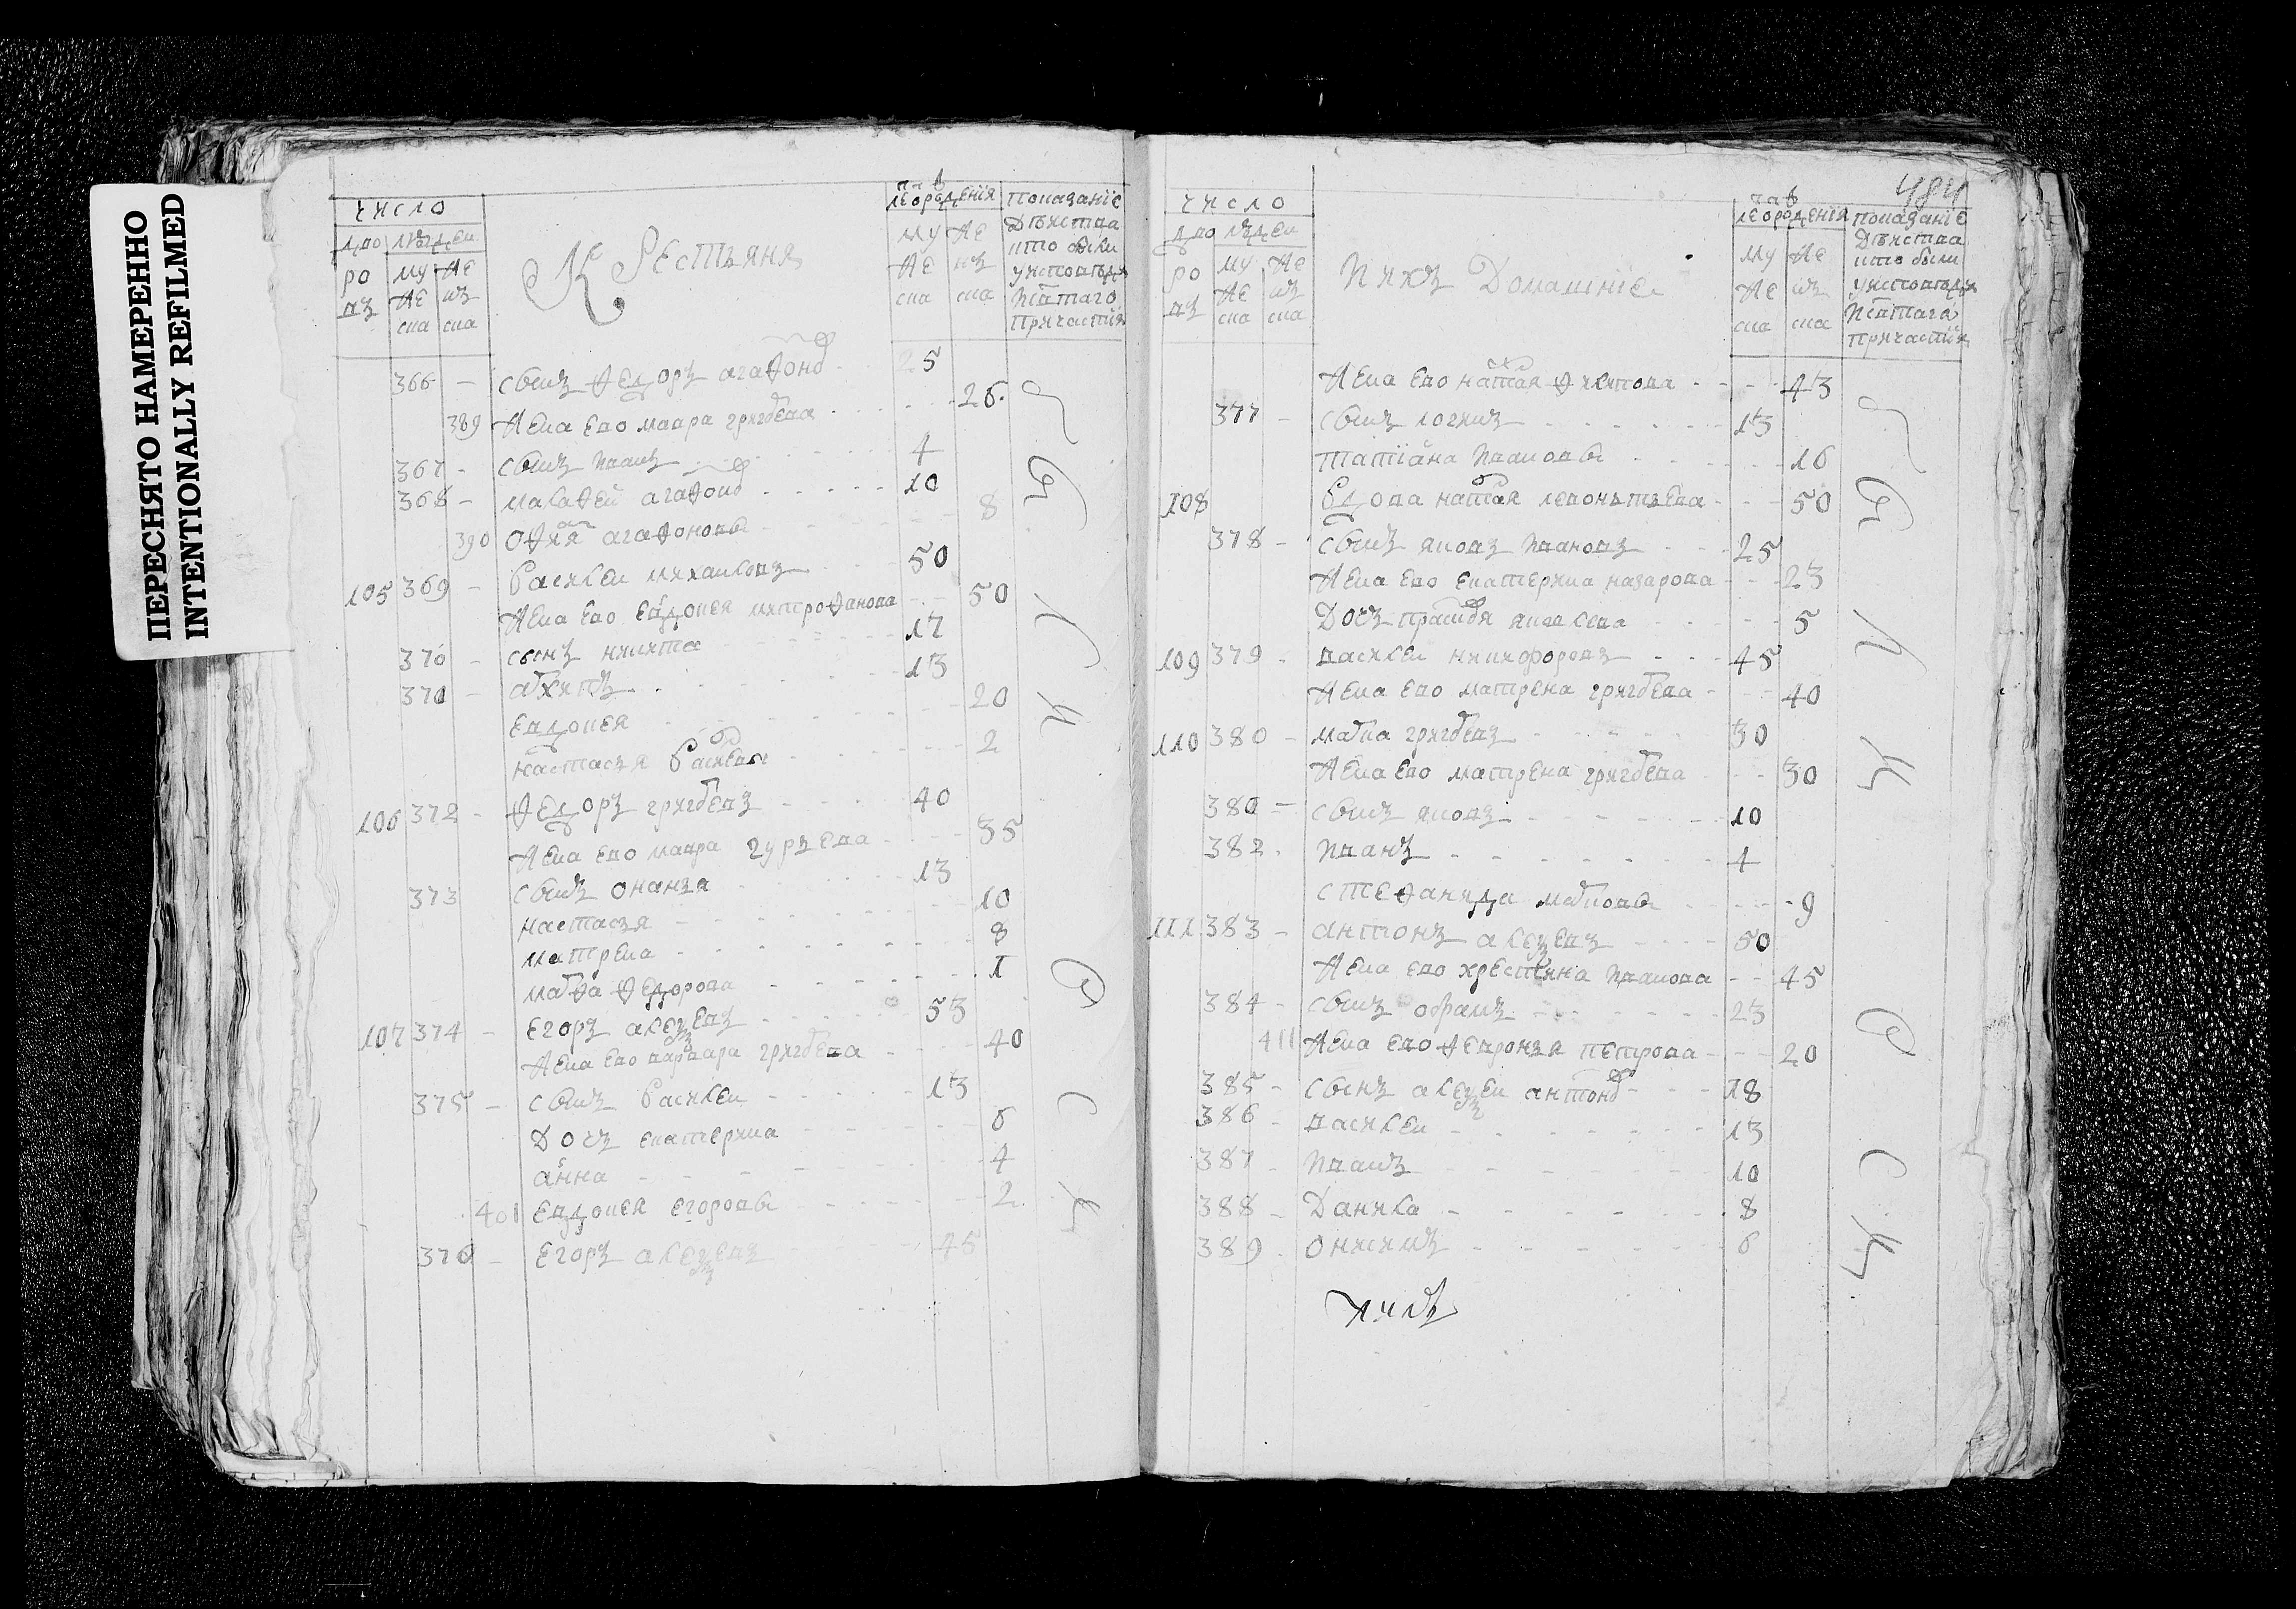 ПЕРЕСНЯТО НАМЕРЕННО
INTENTIONALLY REFILMED
число
дво
ро
въ
людеи
му
же
ска
же
нъ
ска
Крестьяня
лѣ рожденія
му
же
ска
же
нъ
ска
показаніе
Дѣиства
кто были
у исповеди
и стаго
причастия
366 - сынъ Ѳедоръ агаѲоно 25
389 жена ево мавра григоева 26
367 - сынъ иванъ 4
368 - макаѲеи агаѲоно 10
390 оѲия агаѲоновы 8
105 369 - Василеи михаиловъ 50
жена ево евдокея митроѲанова 50
370 - сынъ никита 17
371 - архипъ 13
евдокея 20
настасья Василевы 2
106 372 - Ѳедоръ григоевъ 40
жена ево мавра гурьева 35
373 сынъ ананья 13
настасья 10
матрена 8
марѲа Ѳедорова 1
107 374 - егоръ алеѯевъ 53
жена ево варвара григоева 40
375 - сынъ Василеи 13
Дочь екатерина 6
анна 4
401 евдокея егоровы 2
376 - егоръ алеѯевъ 45
484
число
дво
ро
въ
людеи
му
же
ска
же
нъ
ска
И ихъ Домашніе
лѣ рожденія
му
же
ска
же
нъ
ска
показаніе
Дѣиства
кто были
у исповеди
и стаго
причастия
жена ево наталя Ѳилипова 43
377 - сынъ логинъ 13
татіана ивановы 16
108 Вдова наталя левонтьева 50
378 - сынъ яковъ ивановъ 25
жена ево екатерина назарова 23
Дочь праскоя яковлева 5
109 379 - василеи никифоровъ 45
жена ево матрена григоева 40
110 380 - марко григоевъ 30
жена ево матрена григоева 30
381 - сынъ яковъ 10
382 - иванъ 4
стеѲанида марковы 9
111 383 - антонъ алеѯевъ 50
жена ево хрестина иванова 45
384 - сынъ абрамъ 23
411 жена ево Ѳевронья петрова 20
385 - сынъ алеѯеи антоно 18
386 - василеи 13
387 - иванъ 10
388 - Данила 8
389 - онисимъ 6